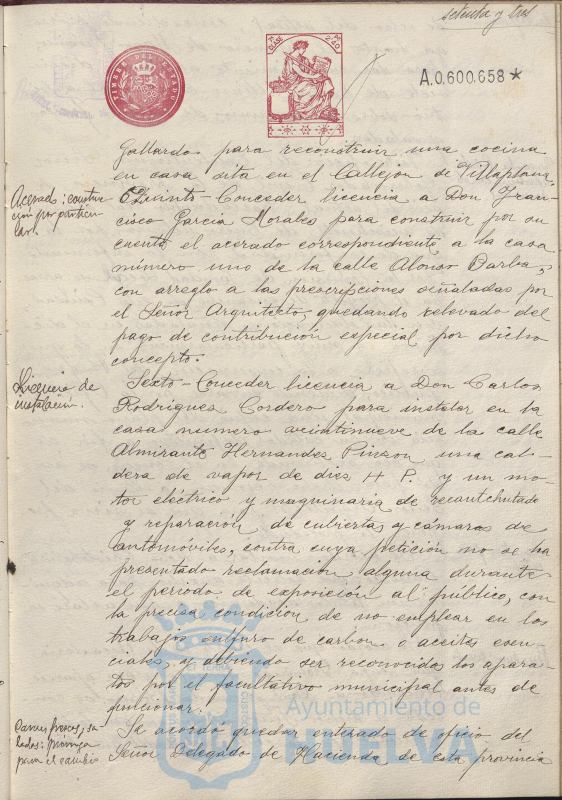 setenta y tres
TIMBRE DEL ESTADO
A.0.600.658*
Gallardo para reconstruir una cocina
en casa sita en el Callejon de Villaplana.
Acerado: construc
cion por particu
lar.
Quinto- Conceder licencia a Don Fran-
cisco Garcia Morales para construir por su
cuenta el acerado correspondiente a la casa
número uno de la calle Alonso Barba,
con arreglo a las prescripciones señaladas por
el Señor Arquitecto, quedando relevado del
pago de contribución especial por dicho
concepto.
Licencia de
instalación.
Sexto- Conceder licencia a Don Carlos
Rodriguez Cordero para instalar en la
casa numero veintinueve de la calle
Almirante Hernandez Pinzon una cal-
dera de vapor de diez H P. y un mo-
tor eléctrico y maquinaria de recauchutado
y reparación de cubiertas y cámaras de
automóviles, contra cuya petición no se ha
presentado reclamacion alguna durante
el periodo de exposición al público, con
la precisa condicion de no emplear en los
trabajos sulfuro de carbon o aceites esen-
ciales, y debiendo ser reconocidos los apara-
tos por el facultativo municipal antes de
funcionar.
Carnes frescas, sa
ladas: prórroga
para el cambio
Se acordó quedar enterado de oficio del
Señor Delegado de Hacienda de esta provincia
Ayuntamiento de
HUELVA